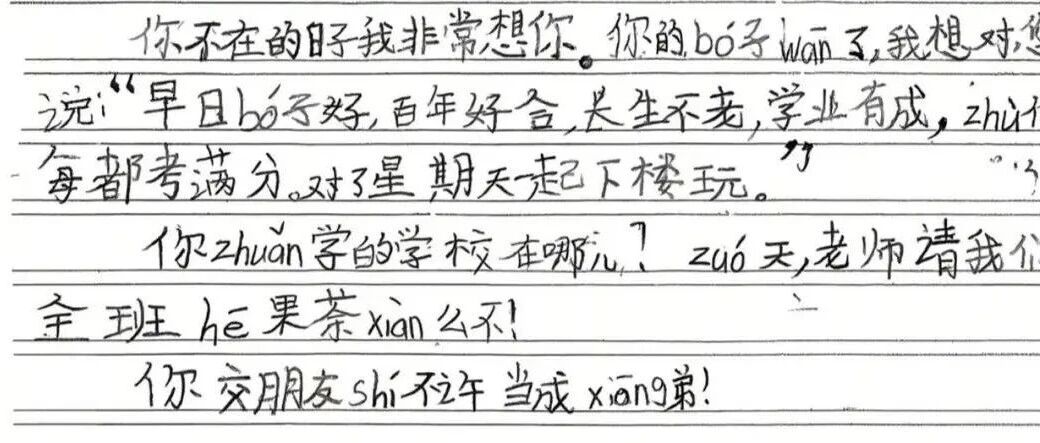 你不在的日子我非常想你。你的bó子wān了,我想对您
说:“早日bó子好,百年好合,长生不老,学业有成,zhù
每都考满分。对了星期天一起下楼玩。”
你zhuǎn学的学校在哪儿? zuó天,老师请我们
全班hē果茶xiàn么不!
你交朋友shí不许当成xiōng弟!